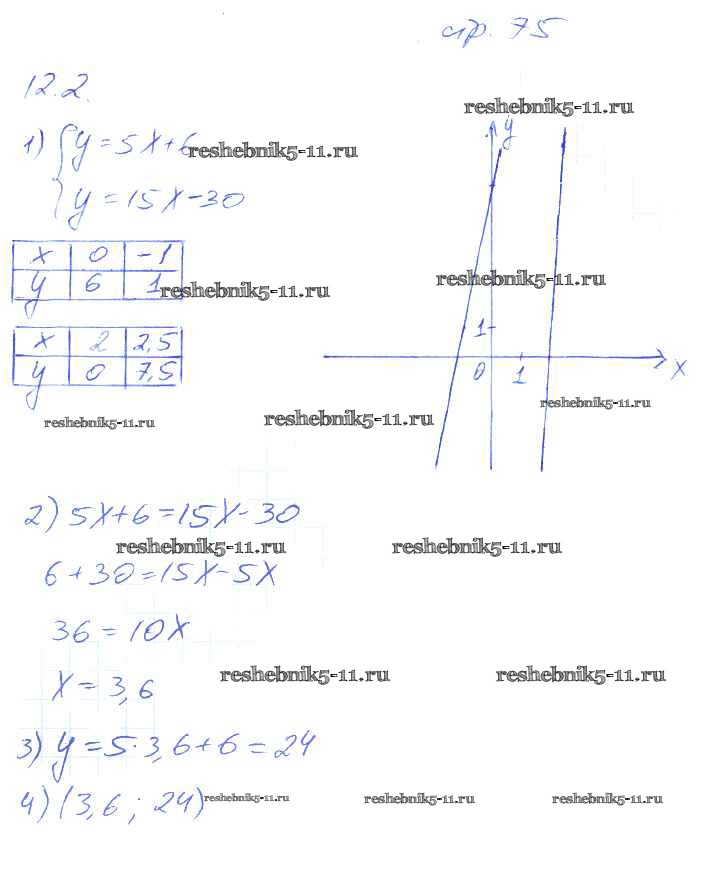 стр. 75
12.2.
reshebnik5-11.ru
1) { y = 5x + 6
reshebnik5-11.ru
y = 15x - 30
x 0 -1
y 6 1
reshebnik5-11.ru
x 2 2,5
y 0 7,5
reshebnik5-11.ru
y
reshebnik5-11.ru
1
0 1 x
reshebnik5-11.ru
reshebnik5-11.ru
2) 5x + 6 = 15x - 30
reshebnik5-11.ru reshebnik5-11.ru
6 + 30 = 15x - 5x
36 = 10x
reshebnik5-11.ru reshebnik5-11.ru
x = 3,6
3) y = 5 · 3,6 + 6 = 24
4) (3,6 ; 24)
reshebnik5-11.ru reshebnik5-11.ru reshebnik5-11.ru